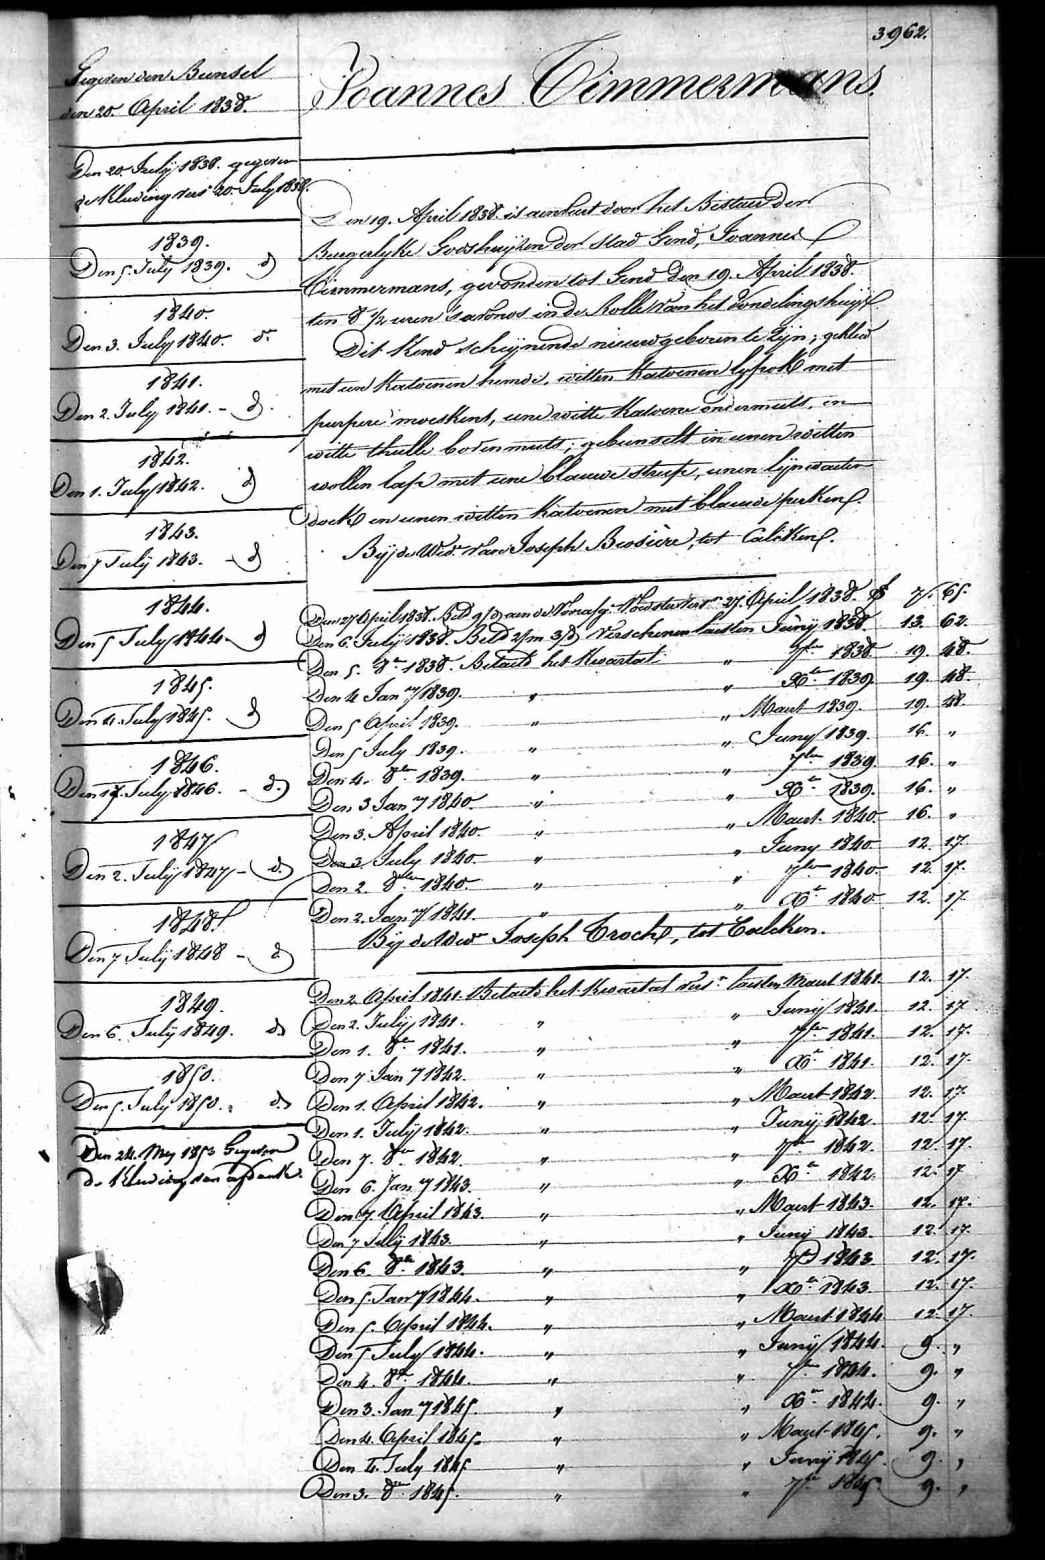 3962.
Joannes Timmermans.
Gegeven den Bunsel
den 20. April 1838.
Den 20. July 1838. gegeven
de Kleeding sers 20. July 1838.
1839.
Den 5. July 1839. d
1840.
Den 3. July 1840. d.
1841.
Den 2. July 1841. - d.
1842.
Den 1. July 1842. d
1843.
Den 7 July 1843. - d
1844.
Den 5 July 1844 - d
1845.
Den 4. July 1845. d
1846.
Den 17. July 1846. - d.
1847
Den 2. July 1847 - d.
1848.
Den 7 July 1848 - d
1849.
Den 6. July 1849. d.
1850.
Den 5. July 1850. d.
Den 24. Mey 1853 Gegeven
de Kleeding van afdank.
Den 19. April 1838. is aenhaert door het Bestuer der
Burgerlyke Godshuijzen der stad Gend, Joannes
Timmermans, gevonden tot Gend den 19. April 1838.
ten 8 1/2 uren s'avonds in de Rolle van het Vondelingshuijs.
Dit Kind scheijnende nieuwgeboren te zyn; gekleed
met een katoenen hemde, witten katoenen lyfrok met
purpere moeskens, eene witte katoene ondermuts, en
witte thulle bovenmuts; gebunselt in eenen witten
wollen lap met eene blauwe streep, eenen lynwaeten
doek en eenen witten katoenen met blauwe perken.
Bij de Wed. van Joseph Bussière, tot Calcken.
Den 27 April 1838. Bet. aen de Voorsg. Voedster 27. April 1838. 7. 65.
Den 6. July 1838. Bet. 2/m 3/d Verschenen laesten Juny 1838 13. 62.
Den 5. 8er 1838. Betaelt het Kwartael " 7ber 1838 19. 48.
Den 4 Jany 1839. " " Xber 1839 19. 48.
Den 5 April 1839. " " Maert 1839 19. 48.
Den 5 July 1839. " " Juny 1839. 16. "
Den 4. 8ber 1839. " " 7ber 1839 16. "
Den 3 Jany 1840 " " Xber 1839. 16. "
Den 3. April 1840. " " Maert 1840 16. "
Den 3. July 1840 " " Juny 1840 12. 17.
Den 2. 8ber 1840. " " 7ber 1840 12. 17.
Den 2. Jany 1841. " " Xber 1840 12. 17.
Bij de Wed. Joseph Troch, tot Calcken.
Den 2. April 1841. Betaelt het Kwartael vers. laesten Maert 1841 12. 17.
Den 2. July 1841. " " Juny 1841. 12. 17
Den 1. 8ber 1841. " " 7ber 1841. 12. 17.
Den 7 Jany 1842. " " Xber 1841. 12. 17.
Den 1. April 1842. " " Maert 1842 12. 17.
Den 1. July 1842. " " Juny 1842 12. 17.
Den 7. 8ber 1842. " " 7ber 1842. 12. 17.
Den 6. Jany 1843. " " Xber 1842. 12. 17
Den 7. April 1843. " " Maert 1843. 12. 17.
Den 7 July 1843. " " Juny 1843. 12. 17.
Den 6. 8ber 1843. " " 7ber 1843. 12. 17.
Den 5. Jany 1844. " " Xber 1843. 12. 17.
Den 5. April 1844. " " Maert 1844 12. 17.
Den 5 July 1844. " " Juny 1844. 9. "
Den 4. 8ber 1844. " " 7ber 1844. 9. "
Den 3. Jany 1845. " " Xber 1844. 9. "
Den 4. April 1845. " " Maert 1845. 9. "
Den 4. July 1845 " " Juny 1845. 9. "
Den 3. 8ber 1845. " " 7ber 1845. 9. "